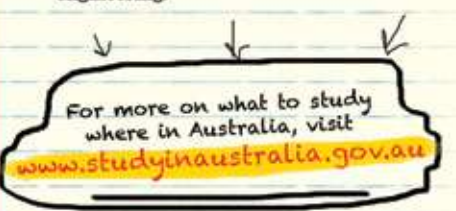 For more on what to study
where in Australia, visit
www.studyinaustralia.gov.au